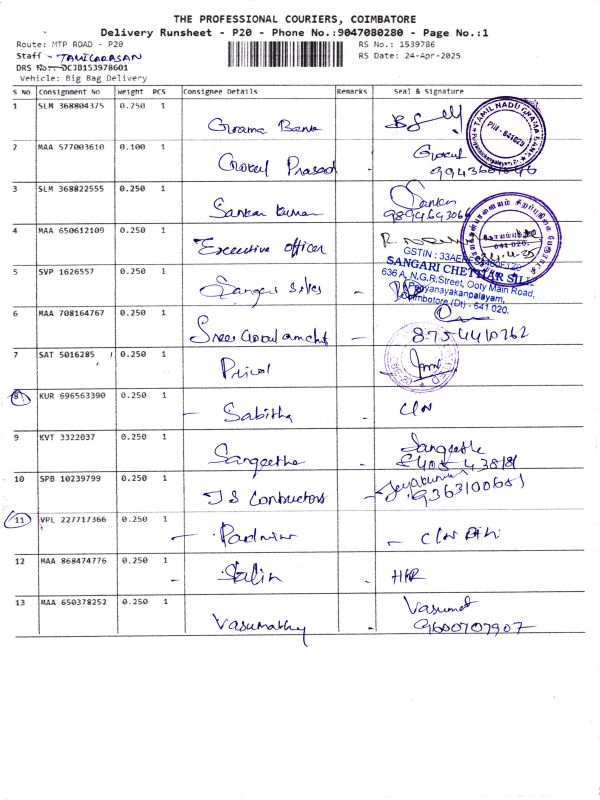 THE PROFESSIONAL COURIERS, COIMBATORE
Delivery Runsheet - P20 - Phone No.:9047080280 - Page No.:1
Route: MTP ROAD - P20
RS No.: 1539786
Staff - TAMILARASAN
RS Date: 24-Apr-2025
DRS No.: DCJB153978601
Vehicle: Big Bag Delivery
S No Consignment No Weight PCS Consignee Details Remarks Seal & Signature
1 SLM 368804375 0.250 1 Grama Bank
TAMIL NADU GRAMA BANK
PIN - 641029
2 MAA 577003610 0.100 1 Gokul Prasad - Gokul
3 SLM 368822555 0.250 1 Sankar Kumar Sankar
9894643066
4 MAA 650612109 0.250 1 Executive officer
641 020.
GSTIN : 33
SANGARI CHETTIAR SILK
636 A, N.G.R.Street, Ooty Main Road,
Periyanayakanpalayam,
Coimbatore (Dt) - 641 020.
5 SVP 1626557 0.250 1 Sangari Silks -
6 MAA 708164767 0.250 1 - 8754410262
7 SAT 5016285 0.250 1 Pricol
8 KUR 696563390 0.250 1 - Sabitha - C/N
9 KVT 3322037 0.250 1 Sangeetha - Sangeetha
10 SPB 10239799 0.250 1 J S Contructors - Jeyakumar
9363100681
11 VPL 227717366 0.250 1 - - C/N
12 MAA 868474776 0.250 1 - Stalin -
13 MAA 650378252 0.250 1 Vasumathy - Vasumat
9600707907